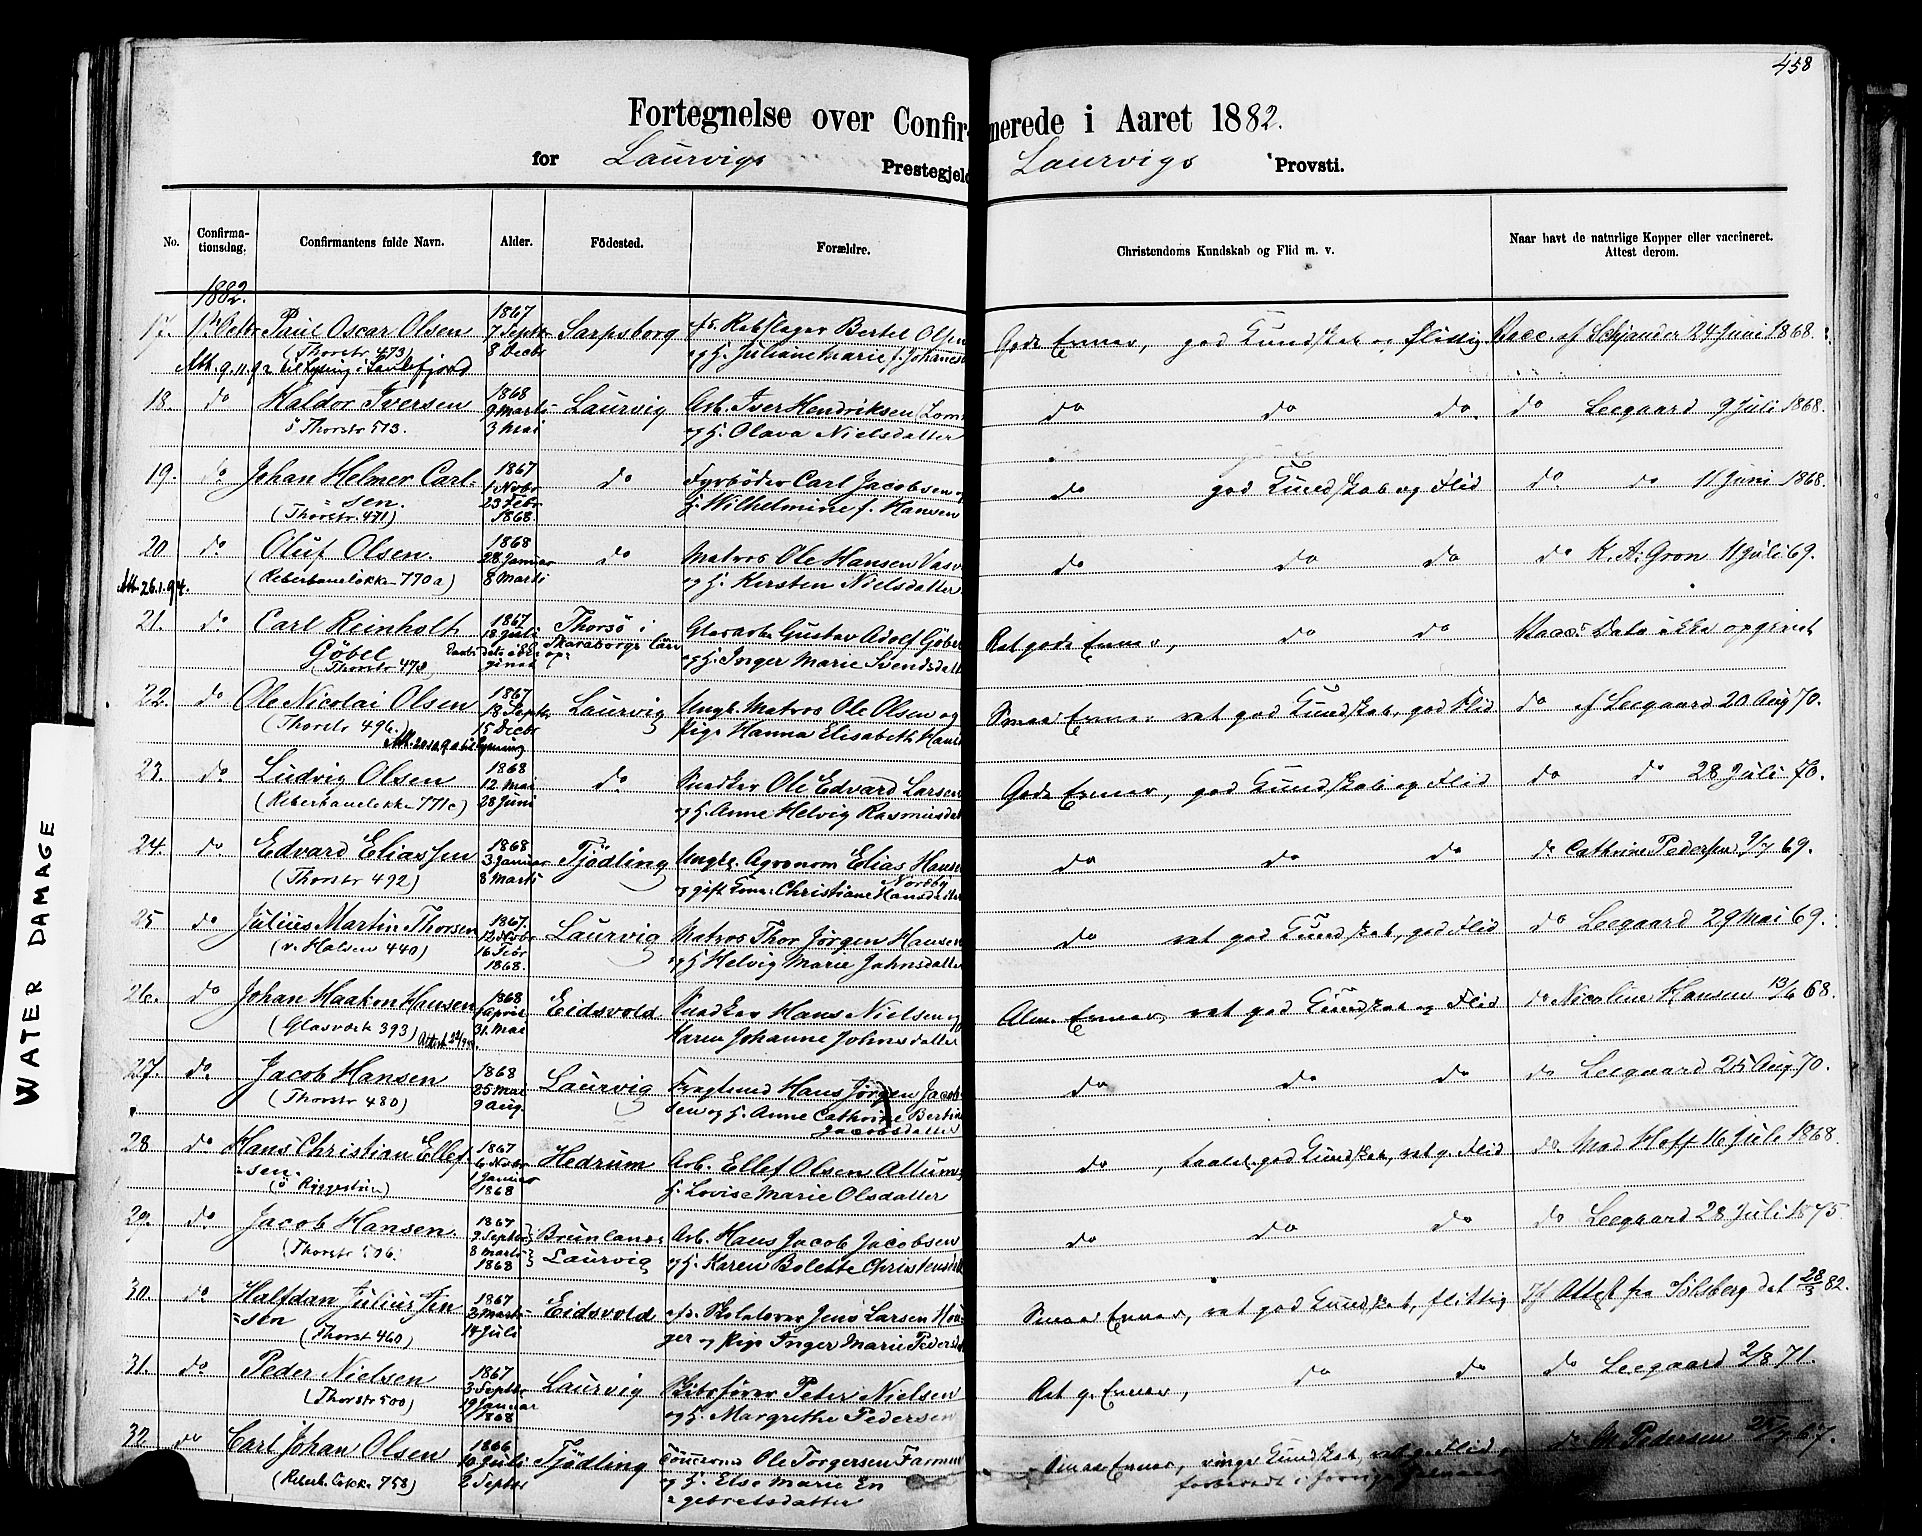 458
Fortegnelse over Confirmerede i Aaret 1882.
for Laurvigs Prestegjeld Laurvigs Provsti.
No. Confirmationsdag. Confirmantens fulde Navn. Alder. Födested. Forældre. Christendoms Kundskab og Flid m. v. Naar havt de naturlige Kopper eller vaccineret. Attest derom.
1882.
17. 1ste Octbr Paul Oscar Olsen 1867 7 Septbr 8 Decbr Sarpsborg Rebslager Bertel Olsen Gode Evner, god Kundskab og flittig Vacc. af Schjander 24 Juni 1868.
(Thorstr 473) og H. Juliane Marie f. Johannes
Att. 9.11.92 til Lysning i Sandefjord
18. do Haldor Iversen 1868 9 Marts 3 Mai Laurvig Arb. Iver Hendriksen do do do. do Leegaard 9 Juli 1868.
ö Thorstr 513. og H. Olava Nielsdatter
19. do Johan Helmer Carl- 1867 1 Novbr 23 Febr 1868. do Fyrböder Carl Jacobsen og do god Kundskab og Flid do do 11 Juni 1868.
sen. (Thorstr. 471) H. Wilhelmine f. Hansen
20. do Oluf Olsen. 1868 28 Januar 8 Marts do Matros Ole Hansen do do do do K. A. Gron 11 Juli 69.
(Reberbaneløkke 770a) og H. Kirsten Nielsdatter
Att. 26.1.94.
21. do Carl Reinholt 1867 18 Juli Thorsö i Glasarb. Gustav Adolf Göbel Ret gode Evner, do do Vacc. Dato ikke opgivet
Göbel (Thorstr 473) Skaraborgs Län og H. Inger Marie Svendsdatt
22. do Ole Nicolai Olsen 1867 18 Septbr 15 Decbr Laurvig Ungk. Matros Ole Olsen og Smaa Evner ret god Kundskab, god Flid do af Leegaard 20 Aug 70.
(Thorstr 496.) Pige Hanna Elisabeth
23. do Ludvig Olsen 1868 12 Mai 28 Juni do Snedker Ole Edvard Larsen Gode Evner, god Kundskab og Flid do do 28 Juli 70.
(Reberbaneløkke 771c) og H. Anne Helvig Rasmusdat
24. do Edvard Eliassen 1868 3 Januar 8 Marts Tjödling Ungk. Agronom Elias Hansen do do do do Cathrine Pedersen 9/7 69.
(Thorstr 492) Nordby og gift Kone Christiane Hansdatter
25 do Julius Martin Thorsen 1867. 12 Novbr 16 Febr 1868. Laurvig Matros Thor Jörgen Hansen do ret god Kundskab, god Flid do Leegaard 29 Mai 69.
(v. Halsen 440) og H Helvig Marie Johnsdatter
26. do Johan Haakon Hansen 1868 April 31. Mai Eidsvold Snedker Hans Nielsen og Alm. Evner, ret god Kundskab og Flid do Nicoline Hansen 13/6 68.
(Glasværk 393) Karen Johanne Johnsdatter
27. do Jacob Hansen 1868 25 Mai 9 Aug. Laurvig Fragtmand Hans Jörgen Jacob- do do do do Leegaard 25 Aug 70.
(Thorstr 480) sen og H. Anne Cathrine Bertine Jacobsdatter
28 do Hans Christian Ellef- 1867 6 Novbr 1 Januar 1868 Hedrum Arb. Ellef Olsen do, taalel. god Kundskab, ret g. Flid do Mad Hoff 16 Juli 1868.
sen. H. Lovise Marie Olsdatter
29. do Jacob Hansen 1867 9 Septbr 8 Marts 1868 Brunlanes Laurvig Arb. Hans Jacob Jacobsen do do do do Leegaard 28 Juli 1875
(Thorstr 506. og H. Karen Bolette
30. do Halfdan Julius Jen 1867 2 Marts 14 Juli Eidsvold Skolelærer Jens Larsen Smaa Evner, ret god Kundskab, flittig Attest fra Tönsberg dat 28/3 82.
sen (Thorst 460) og Pige Inger Marie Peders
31. do Peder Nielsen 1867 3 Septbr 19 Januar 1868 Laurvig Skibsförer Peter Nielsen Ret g. Evner, do do do Leegaard 2/8 71.
(Thorstr 500) og H. Margrethe Pedersen
32. do Carl Johan Olsen 1866 10 Juli 2 Septbr Tjödling Ole Torgersen Smaa Evner, ringe Kundskab, ret g. Flid do Pedersen 67.
(Reberb. Løkke 758) og H. Else Marie En
gebretsdatter
WATER DAMAGE